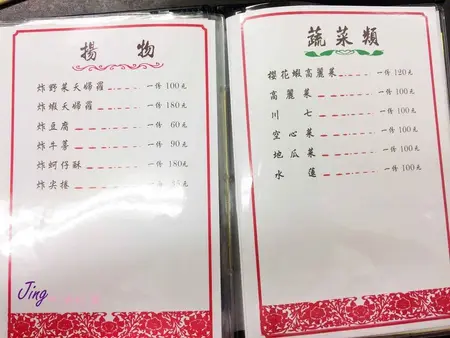 揚物
炸野菜天婦羅 一份100元
炸蝦天婦羅 一份180元
炸豆腐 一份60元
炸牛蒡 一份90元
炸蚵仔酥 一份180元
炸尖捲
Jing
蔬菜類
櫻花蝦高麗菜 一份120元
高麗菜 一份100元
川七 一份100元
空心菜 一份100元
地瓜菜 一份100元
水蓮 一份100元